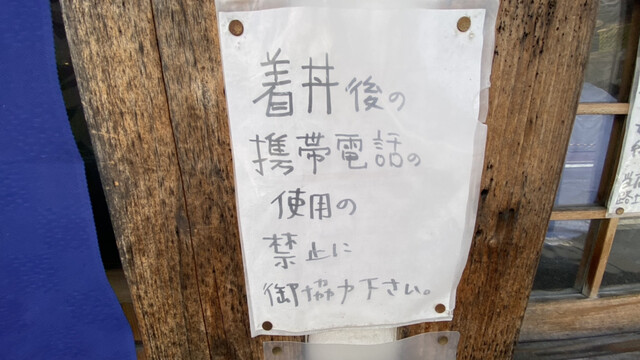 着丼後の
携帯電話の
使用の
禁止に
御協力下さい。